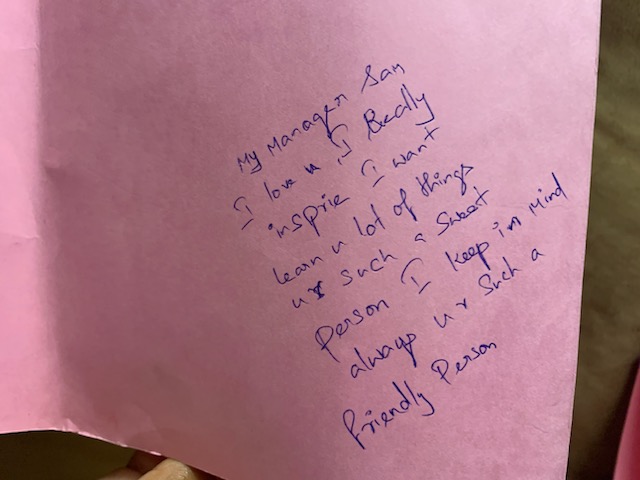 My Manager Sam
I love u I Really
insprie I want
learn u lot of things
ur such a sweet
Person I keep in Mind
always ur such a
friendly Person